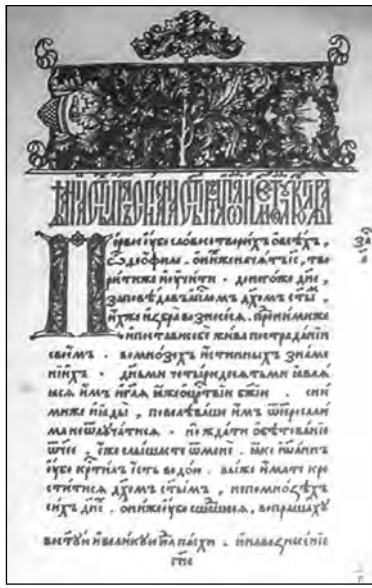 Первое ѹбо слово сотворихъ ѡ всѣхъ,
ѡ ѳеофиле. ѡ нихже начатъ іс҃, тво
рити же и ѹчити. до негоже дне,
заповѣдавъ апⷭ҇лом дх҃ом ст҃ы,
ихже избра вознесесѧ. пред ними же
и постави себе жива по страданіи
своемъ. во мнозѣхъ истинныхъ знаме
ніихъ. деньми четыредесѧтьми ꙗвлѧ
ꙗсѧ имъ, и гл҃ѧ ꙗже о црⷭ҇твіи бж҃іи. с ни
миже и ꙗды, повелѣваше имъ ѿ іерⷭ҇сали
ма не ѿлꙋчатисѧ. но ждати ѡбѣтованіе
ѿчее, еже слышасте ѿ мене. ꙗко іѡаннъ
ѹбо крⷭ҇тилъ есть водою. вы же имате кре
ститисѧ дх҃омъ ст҃ымъ, не по мнозѣхъ
сихъ дн҃е. ѡни же ѹбо сшⷣшесѧ, вопрашахꙋ
во ст҃ꙋю и великꙋю пасхи. и на вознесеніе
гн҃е